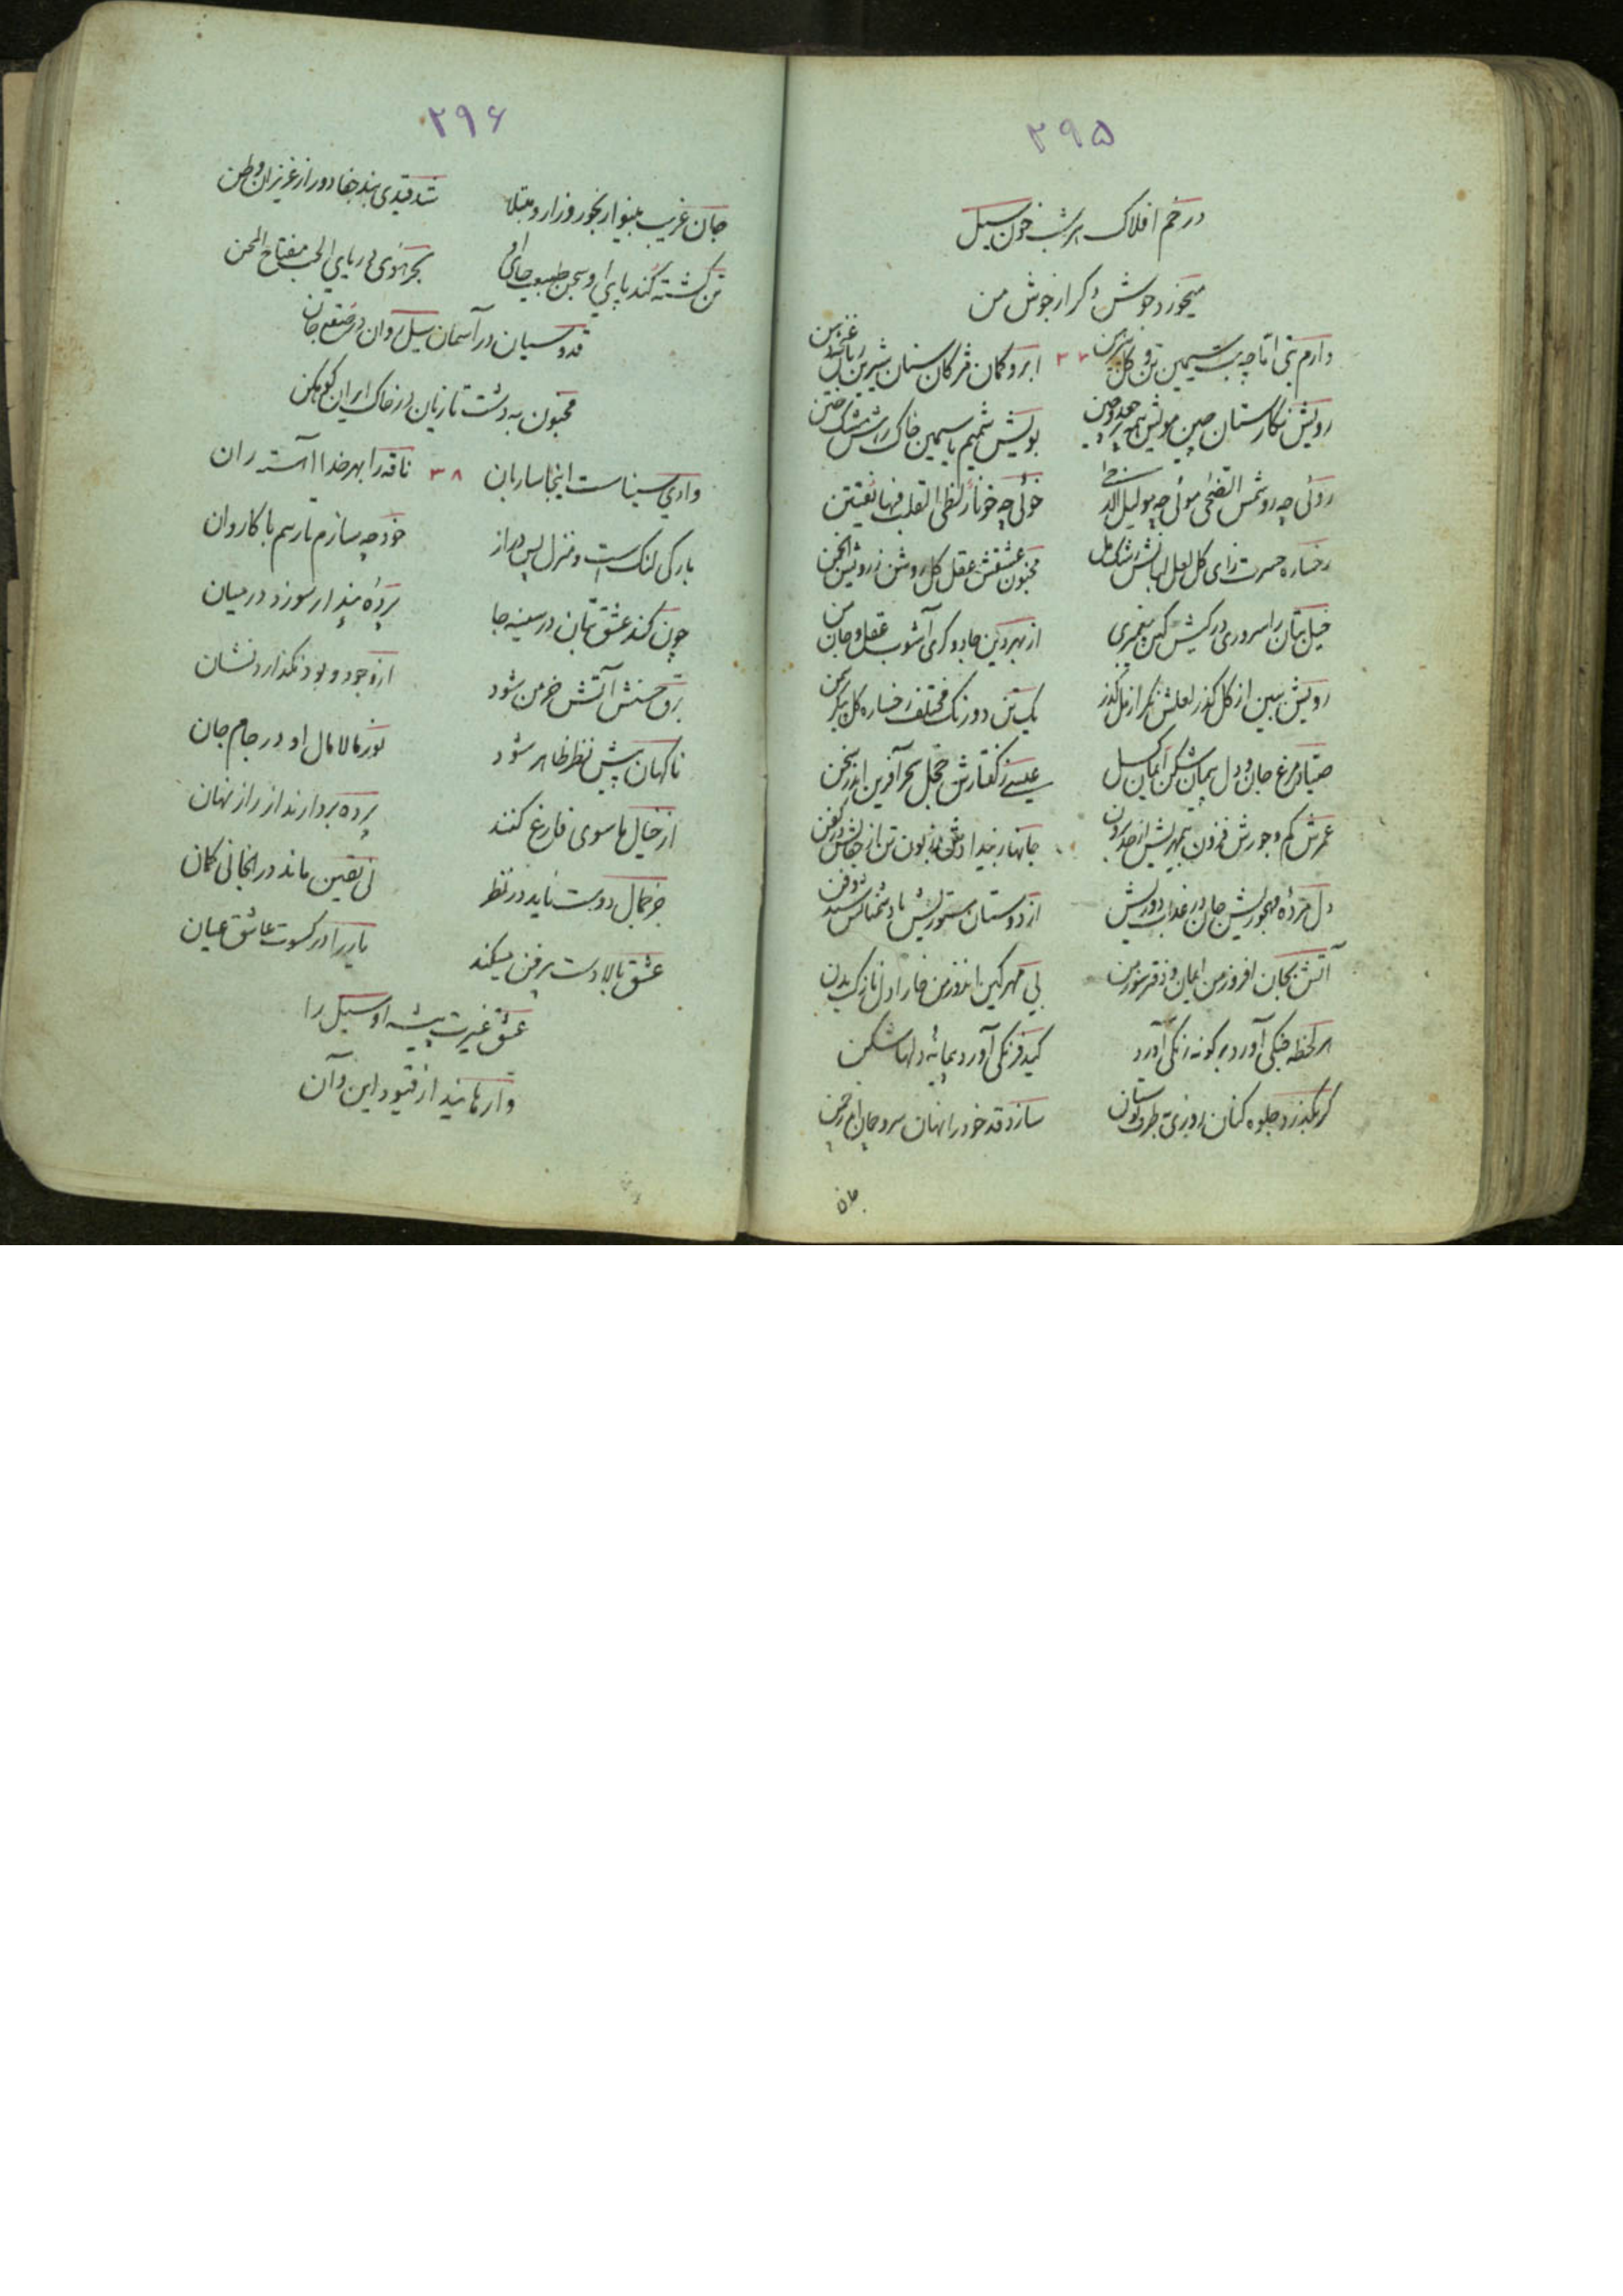 ۲۹۵
در خم افلاک هر شب خون سیل
میخورد جوش و کر از جوش من
دارم بتی اما چه بت سیمین تن و گل پیرهن
ابرو کمان مژگان سنان شیرین
رویش نگارستان چین مویش همه
بویش شمیم یاسمین خاک رهش مشک ختن
روئی چه رو شمس الضحی موئی چه مو لیل الدجی
خوئی چه خو نار لظی القلب فیها
رخساره حسرت زای گل لعل لبانش رشک مل
مجنون عشقش عقل کل روشن ز رویش انجمن
خیل بتان را سروری در کیش کین پیغمبری
از بهر دین جادوگری آشوب عقل و جان من
رویش ببین از گل گذر لعلش نگر از مل گذر
یک تن دو رنگ مختلف رخساره گل
صیاد مرغ جان و دل پیمان شکن ایمان گسل
عیسی ز گفتارش خجل سحر آفرین اندر سخن
عمرش کم و جورش فزون بیمهریش از حد برون
جانها ز بیدادش زبون تن از جفایش در کفن
دل مرده مهجوریش جان در عذاب دوریش
از دوستان مستوریش با دشمنانش
آتش بجان افروز من ایمان و دفتر سوز من
بی مهر کین اندوز من خارا دل نازک بدن
هر لحظه جنگی آورد بر گونه رنگی آورد
کید فرنگی آورد پیمانه دلها شکن
گر بگذرد جلوه کنان روزی بطرف بوستان
سازد قد خود را نهان سرو چمان اندر چمن
جان
۲۹۶
جان غریب بینوا رنجور و زار و مبتلا
شد قیدی بند جفا دور از عزیزان وطن
تن گشته کند پای او سجن
بحر
قدوسیان در آسمان سیل روان در
مجنون به دشت تازیان در خاک ایران کوهکن
وادی سیناست اینجا ساربان
۳۸
ناقه را بهر خدا آهسته ران
بارگی لنگ است و منزل بس دراز
خود چه سازم تا رسم با کاروان
چون کند عشق بتان در سینه جا
پرده پندار سوزد در میان
برق حسنش آتش خرمن شود
از وجود و بود نگذارد نشان
ناگهان پیش نظر ظاهر شود
نور مالامال او در جام جان
از خیال ماسوی فارغ کنند
پرده بردارند از راز نهان
جز جمال دوست ناید در نظر
نی یقین ماند در انجا نی گمان
عشق بالادست پرفن میکند
یار را در کسوت عاشق عیان
عشق غیرت پیشه او سیل را
وارهانید از قیود این و آن